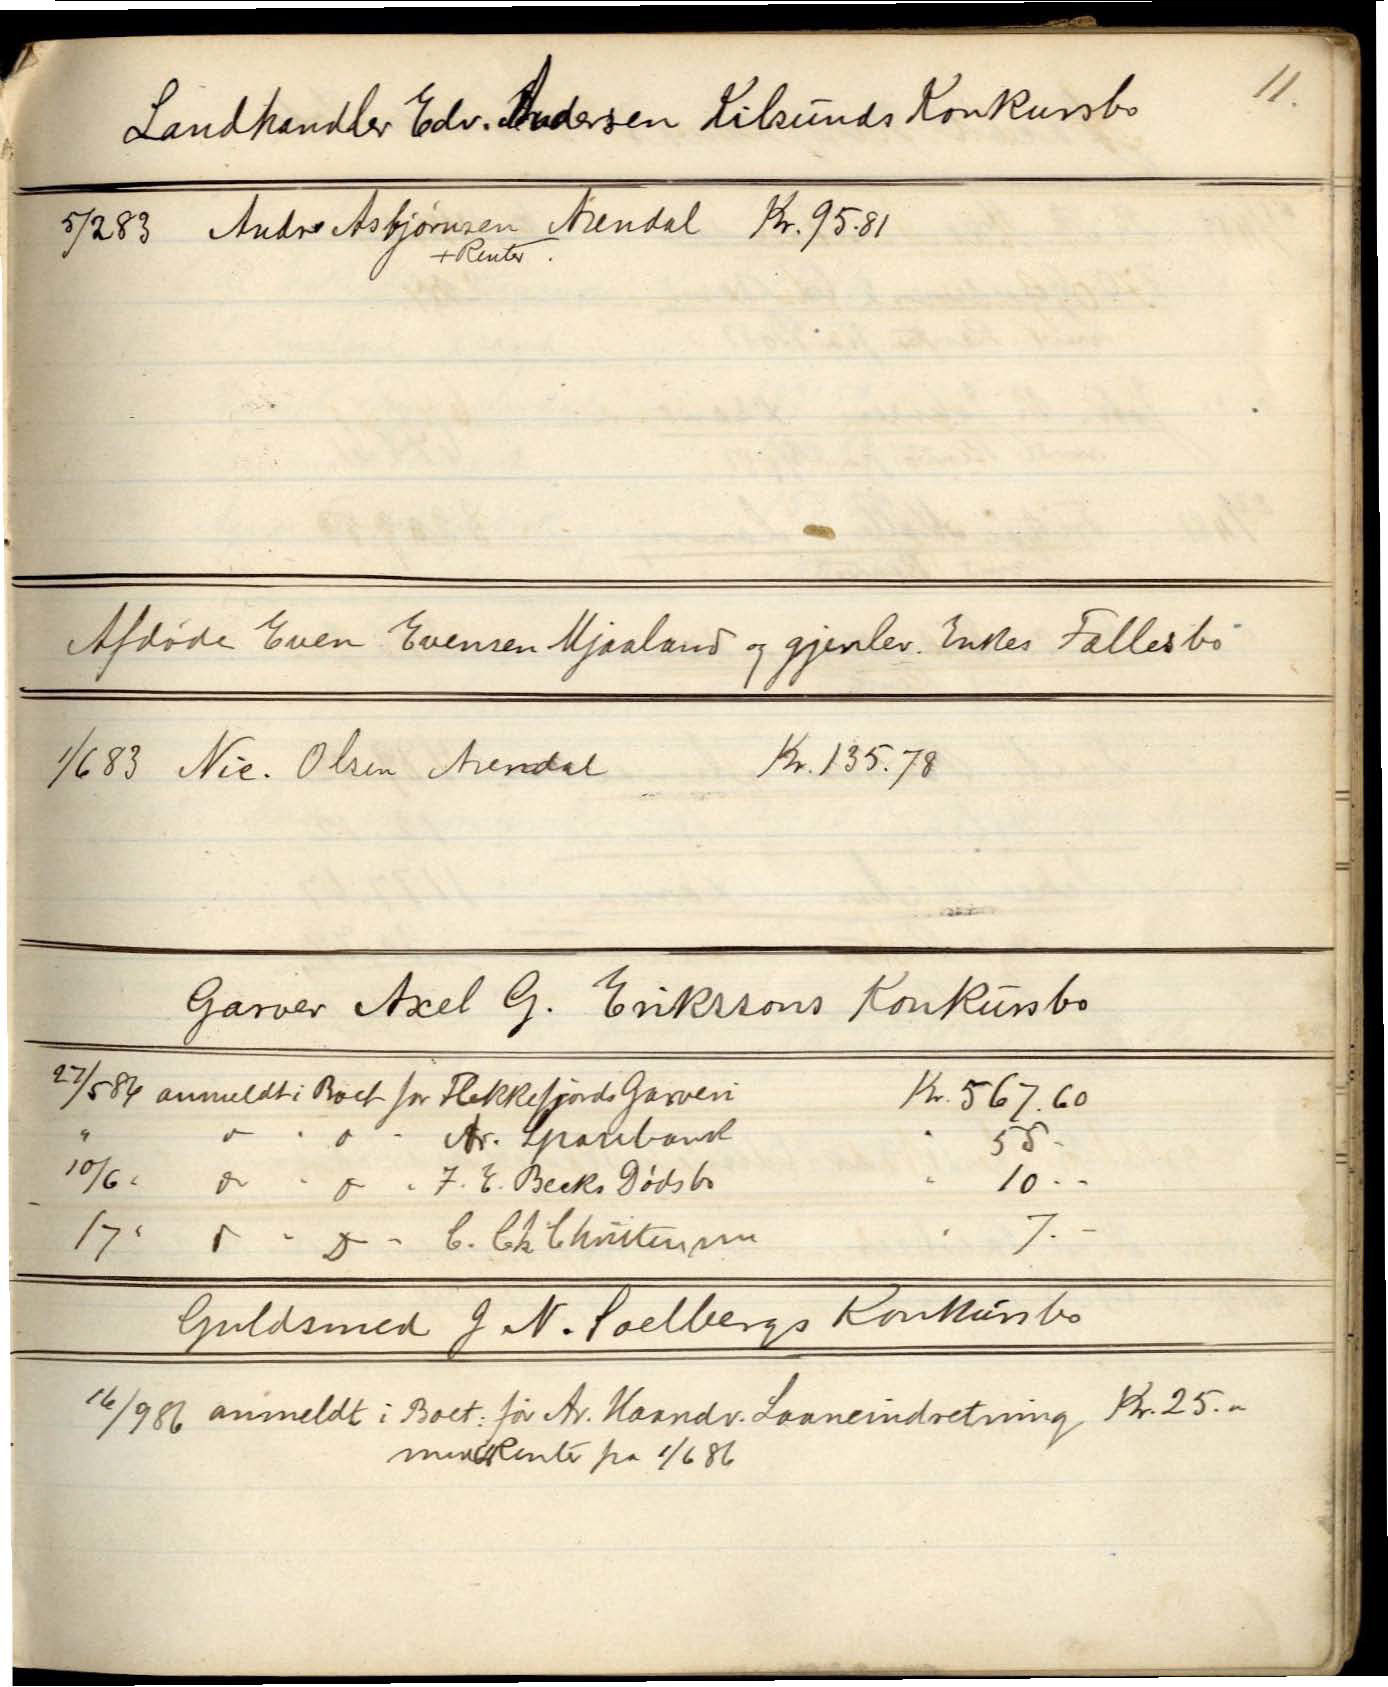 11.
Landhandler Edv. Andersen Kilsunds Konkursbo
5/2 83 Andr. Asbjørnsen Arendal Kr. 95.81
+ Renter.
Afdøde Even Evensen Mjaaland og gjenlev. Enkes Fællesbo
1/6 83 Nic. Olsen Arendal Kr. 135.78
Garver Axel G. Erikssons Konkursbo
27/5 86 anmeldt i Boet for Flekkefjords Garveri Kr. 567.60
" " - " - Ar. Sparebank " 55 -
10/6 " " - " - F. E. Becks Dødsbo " 10 - -
17 " " - " - C. Chr Christensen " 7. -
Guldsmed J N. Soelbergs Konkursbo
16/9 86 anmeldt i Boet: for Ar. Haandv. Laaneindretning Kr. 25. -
med Renter fra 1/6 86